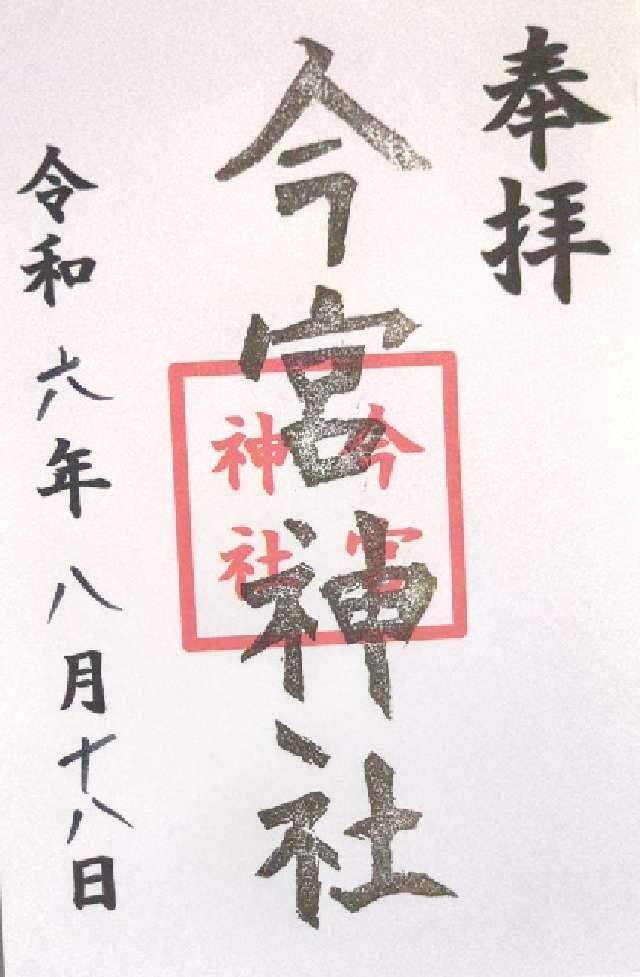 奉拝
今宮神社
今宮
神社
令和六年八月十八日